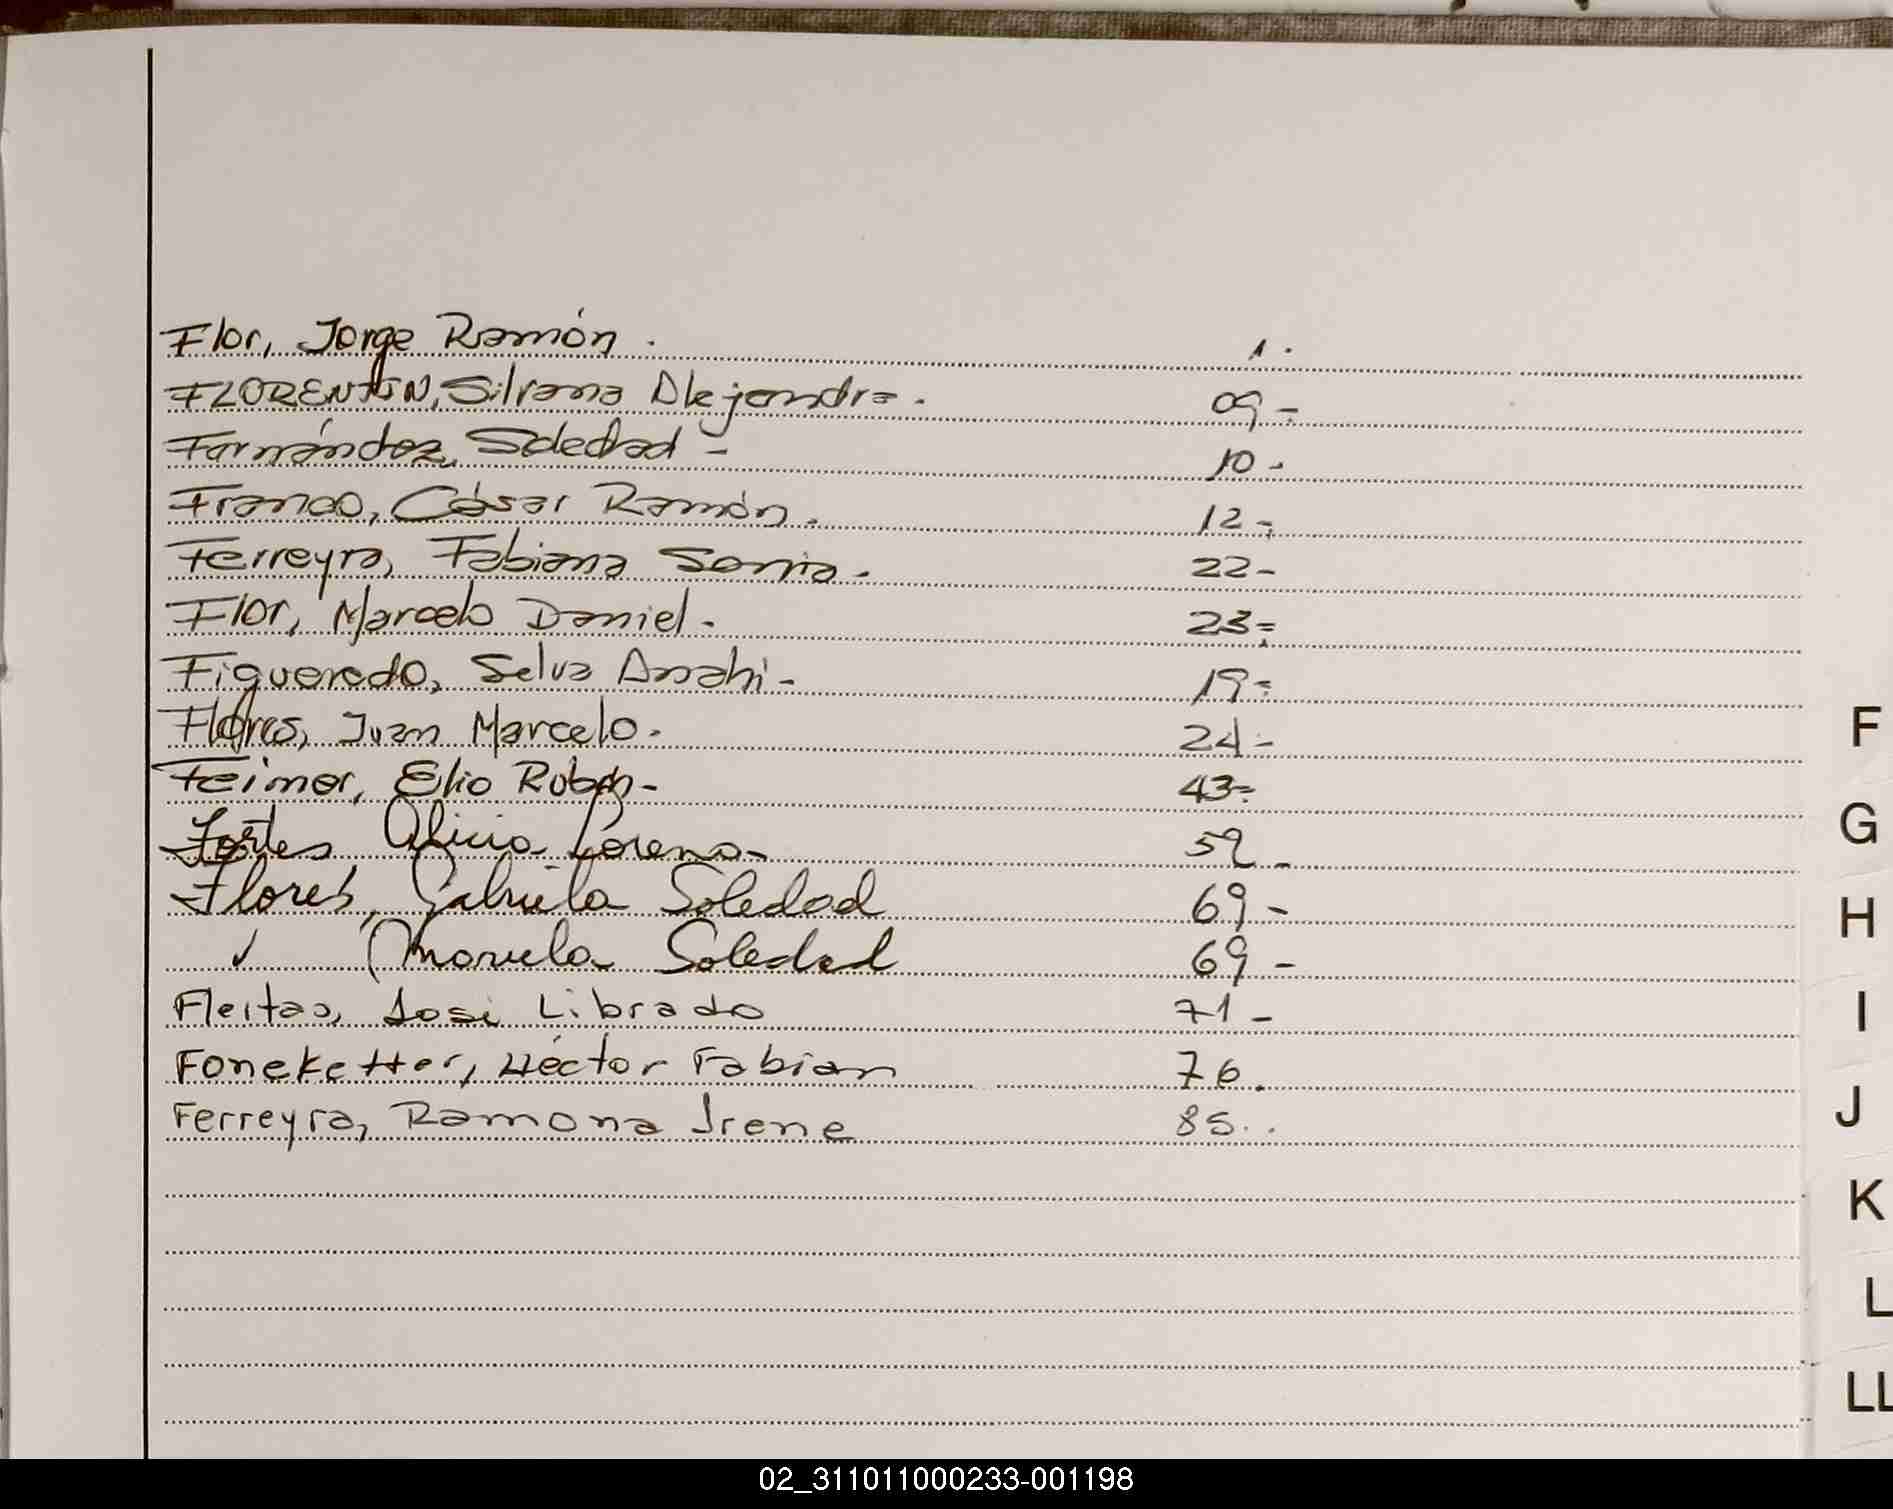 Flor, Jorge Ramón. 1.
FLORENTIN, Silvana Alejandra. 09-
Fernández, Soledad - 10-
Franco, César Ramón. 12-
Ferreyra, Fabiana Sonia. 22-
Flor, Marcelo Daniel. 23-
Figueredo, Selva Anahi- 19-
Flores, Juan Marcelo. 24-
F
Feimer, Elio Rubén- 43-
Fortes Alicia Lorena- 59-
G
Flores, Gabriela Soledad 69-
H
✓ Mariela Soledad 69-
Fleitas, José Librado 71-
I
Foneketter, Héctor Fabian 76.
Ferreyra, Ramona Irene 85..
J
K
L
LL
02_311011000233-001198